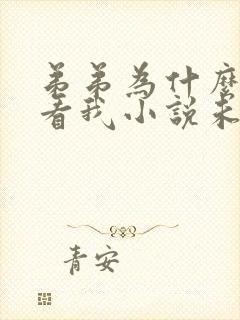 弟弟為什麼
看我小說未
青安